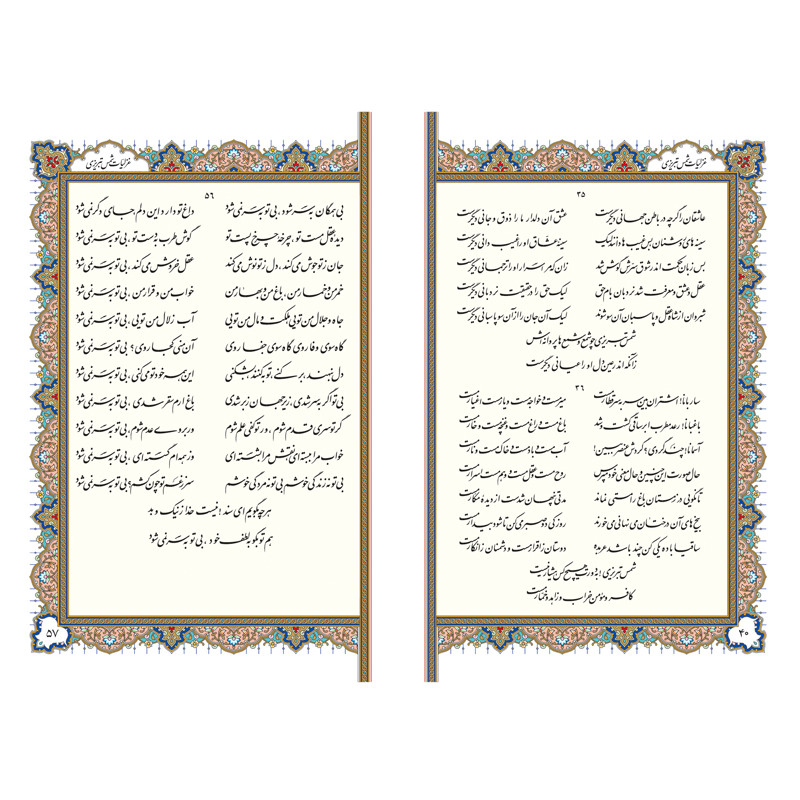 غزلیات شمس تبریزی
۳۵
عاشقان را گرچه در باطن جهانی دیگرست عشق آن دلدار ما را ذوق و جانی دیگرست
سینه های روشنان بس غیب ها دانند لیک سینه عشاق او را غیب دانی دیگرست
بس زبان حکمت اندر شوق سرش گوش شد زان که مر اسرار او را ترجمانی دیگرست
عقل و عشق و معرفت شد نردبان بام حق لیک حق را در حقیقت نردبانی دیگرست
شبروان از شاه عقل و پاسبان آن سو شوند لیک آن جان را از آن سو پاسبانی دیگرست
شمس تبریزی چو شمع و شمع ها پروانه اش
زانکه اندر عین دل او را عیانی دیگرست
۳۶
ساربانا! اشتران بین سر به سر قطار مست میر مست و خواجه مست و یار مست اغیار مست
باغبانا! رعد مطرب ابر ساقی گشت و شد باغ مست و راغ مست و غنچه مست و خار مست
آسمانا! چند گردی؟ گردش عنصر ببین! آب مست و باد مست و خاک مست و نار مست
حال صورت این چنین و حال معنی خود مپرس روح مست و عقل مست و وهم مست اسرار مست
تا نگویی در زمستان باغ را مستی نماند مدتی پنهان شدست از دیده مکار مست
بیخ های آن درختان می نهانی می خورند روزکی دو صبر می کن تا شود بیدار مست
ساقیا باده یکی کن چند باشد عربده دوستان ز اقرار مست و دشمنان ز انکار مست
شمس تبریزی! به دورت هیچ کس هشیار نیست
کافر و مومن خراب و زاهد و خمار مست
۴۰
غزلیات شمس تبریزی
۵۶
بی همگان به سر شود، بی تو به سر نمی شود داغ تو دارد این دلم جای دگر نمی شود
دیده عقل مست تو، چرخه چرخ پست تو گوش طرب به دست تو، بی تو به سر نمی شود
جان ز تو جوش می کند، دل ز تو نوش می کند عقل خروش می کند، بی تو به سر نمی شود
خمر من و خمار من، باغ من و بهار من خواب من و قرار من، بی تو به سر نمی شود
جاه و جلال من تویی ملکت و مال من تویی آب زلال من تویی، بی تو به سر نمی شود
گاه سوی وفا روی گاه سوی جفا روی آن منی کجا روی؟ بی تو به سر نمی شود
دل بنهند، بر کنی، توبه کنند بشکنی این همه خود تو می کنی، بی تو به سر نمی شود
بی تو اگر به سر شدی، زیر جهان زبر شدی باغ ارم سقر شدی، بی تو به سر نمی شود
گر تو سری قدم شوم، ور تو کفی علم شوم ور بروی عدم شوم، بی تو به سر نمی شود
خواب مرا ببسته ای نقش مرا بشسته ای وز همه ام گسسته ای، بی تو به سر نمی شود
بی تو نه زندگی خوشم بی تو نه مردگی خوشم سر ز غم تو چون کشم؟ بی تو به سر نمی شود
هرچه بگویم ای سند! نیست جدا ز نیک و بد
هم تو بگو به لطف خود، بی تو به سر نمی شود
۵۷